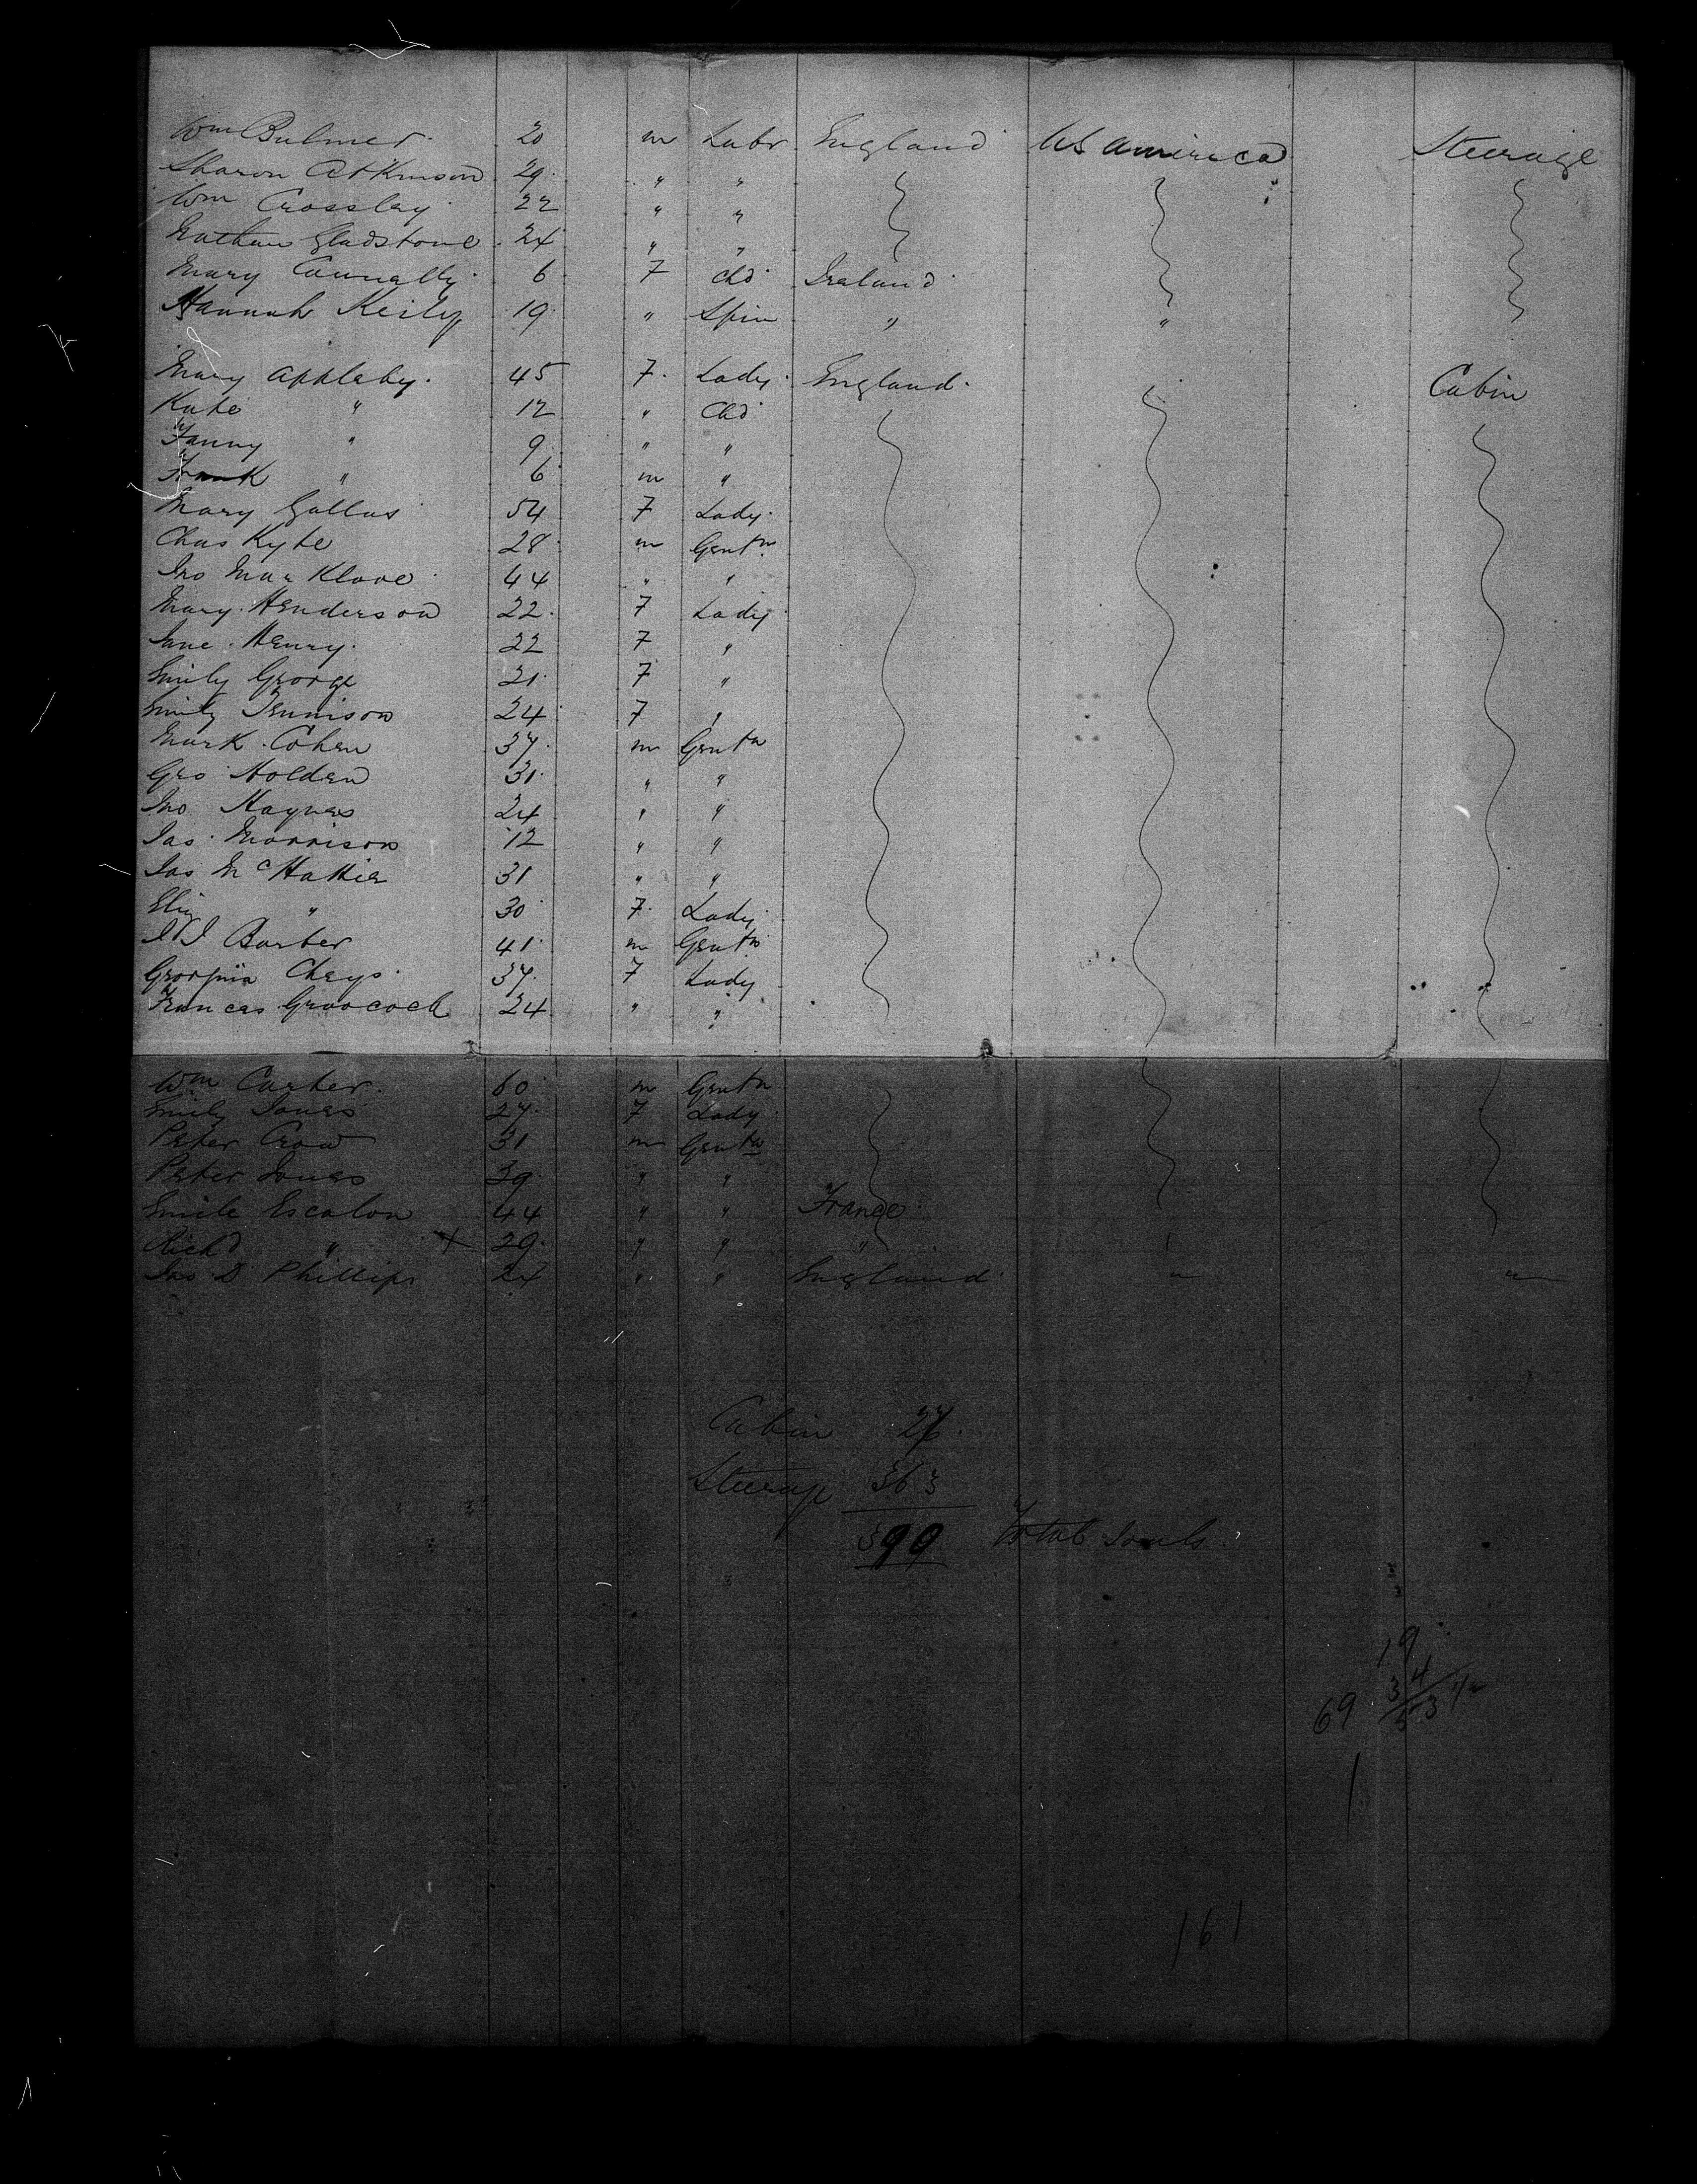 Wm Bulmer. 20 m Labr England US America Steerage
Sharon Atkinson 29 " "
Wm Crossley 22 " "
Nathan Gladstone 24 " "
Mary Connally 6 F Chd Ireland
Hannah Keily 19 " Spin " "
Mary Appleby. 45 F. Lady England. Cabin
Kate " 12 " Chd
Fanny " 9 " "
Frank " 6 m "
Mary Gallus 54 F Lady
Chas Kyte 28 m Gentn
Jno 44 " "
Mary Henderson 22. F Lady
Jane Henry. 22 F "
Emily George 21. F "
Emily Jennison 24 F "
Mark Cohen 37. m Gentn
Geo Holden 31. " "
Jno Haynes 24 " "
Jas. Morrison 12 " "
Jas McHattie 31 " "
Eliz " 30 F. Lady
Barber 41. m Gentn
Georgina Cheys. 37. F Lady
Frances Groocock 24 " "
Wm Carter. 60 m Gentn
Emily Jones 27. F Lady
Peter Crow 31 m Gentn
Peter Jones 39. " "
Emile Escalon 44 " " France
Richd " X 29. " " "
Jas D Phillips 24 " " England " "
Cabin 26
Steerage 363
399 Total Souls.
19
34
69 53
1
161